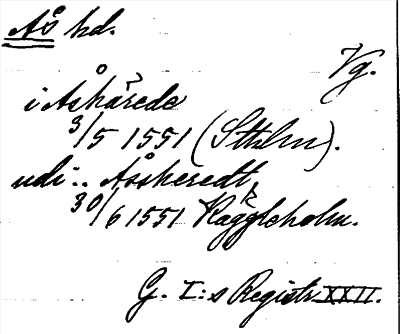 Ås hd.
Vg.
i Åshärede
3/5 1551 (Sthlm).
udi .. Åssheredt,
30/6 1551 Käggleholm.
G. I:s Registr. XXII.